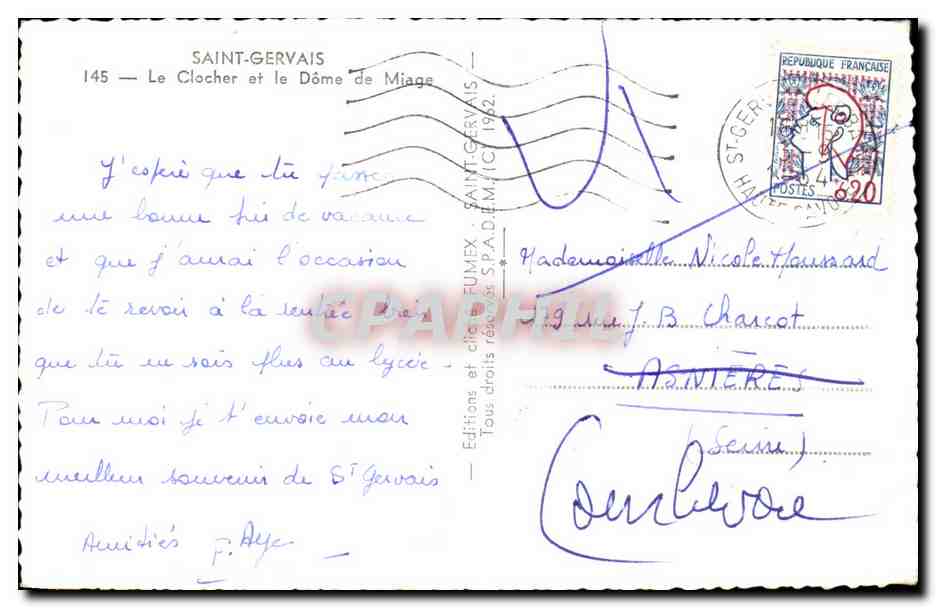 SAINT-GERVAIS
145 — Le Clocher et le Dôme de Miage
J'espère que tu passe
une bonne fin de vacance
et que j'aurai l'occasion
de te revoir à la rentrée bien
que tu ne sois plus au lycée.
Pour moi je t'envoie mon
meilleur souvenir de St Gervais
Amitiés
— Editions et cliché FUMEX - SAINT-GERVAIS —
Tous droits réservés S.P.A.D.E.M. (C) 1962.
REPUBLIQUE FRANÇAISE
POSTES 0.20
ST-GER
HAUTE-SAVOIE
Mademoiselle Nicole Haussard
179 rue J.B Charcot
ASNIÈRES
(Seine)
Courbevoie
CPARHIL